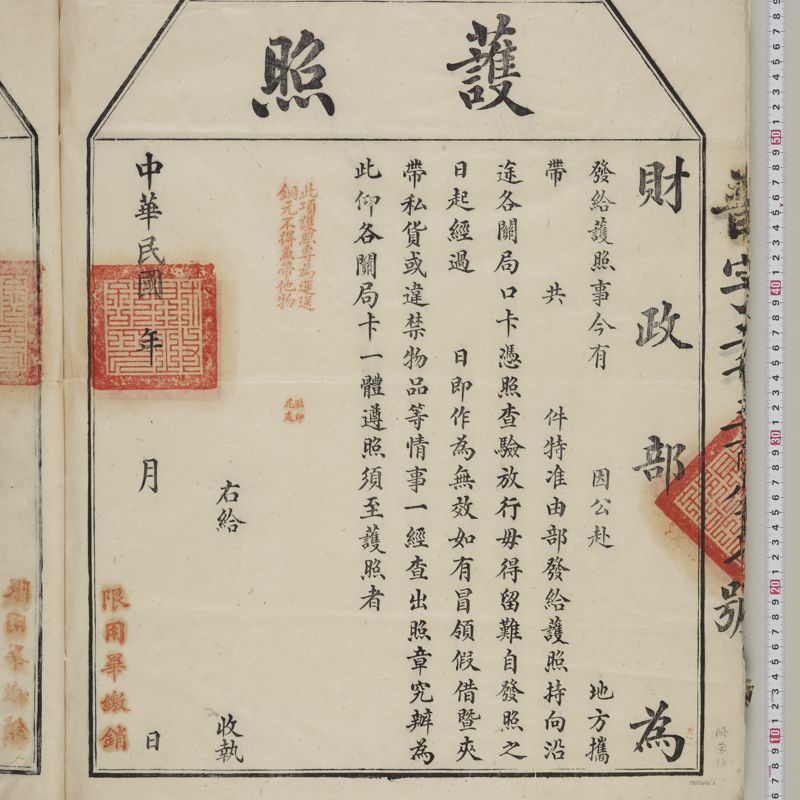 護照
財政部為
發給護照事今有 因公赴 地方攜
帶 共 件特准由部發給護照持向沿
途各關局口卡憑照查驗放行毋得留難自發照之
日起經過 日即作為無效如有冒領假借暨夾
帶私貨或違禁物品等情事一經查出照章究辦為
此仰各關局卡一體遵照須至護照者
此項護照專為運送
銅元不得兼帶他物
貼印
花處
右給 收執
中華民國 年 月 日
限用畢繳銷